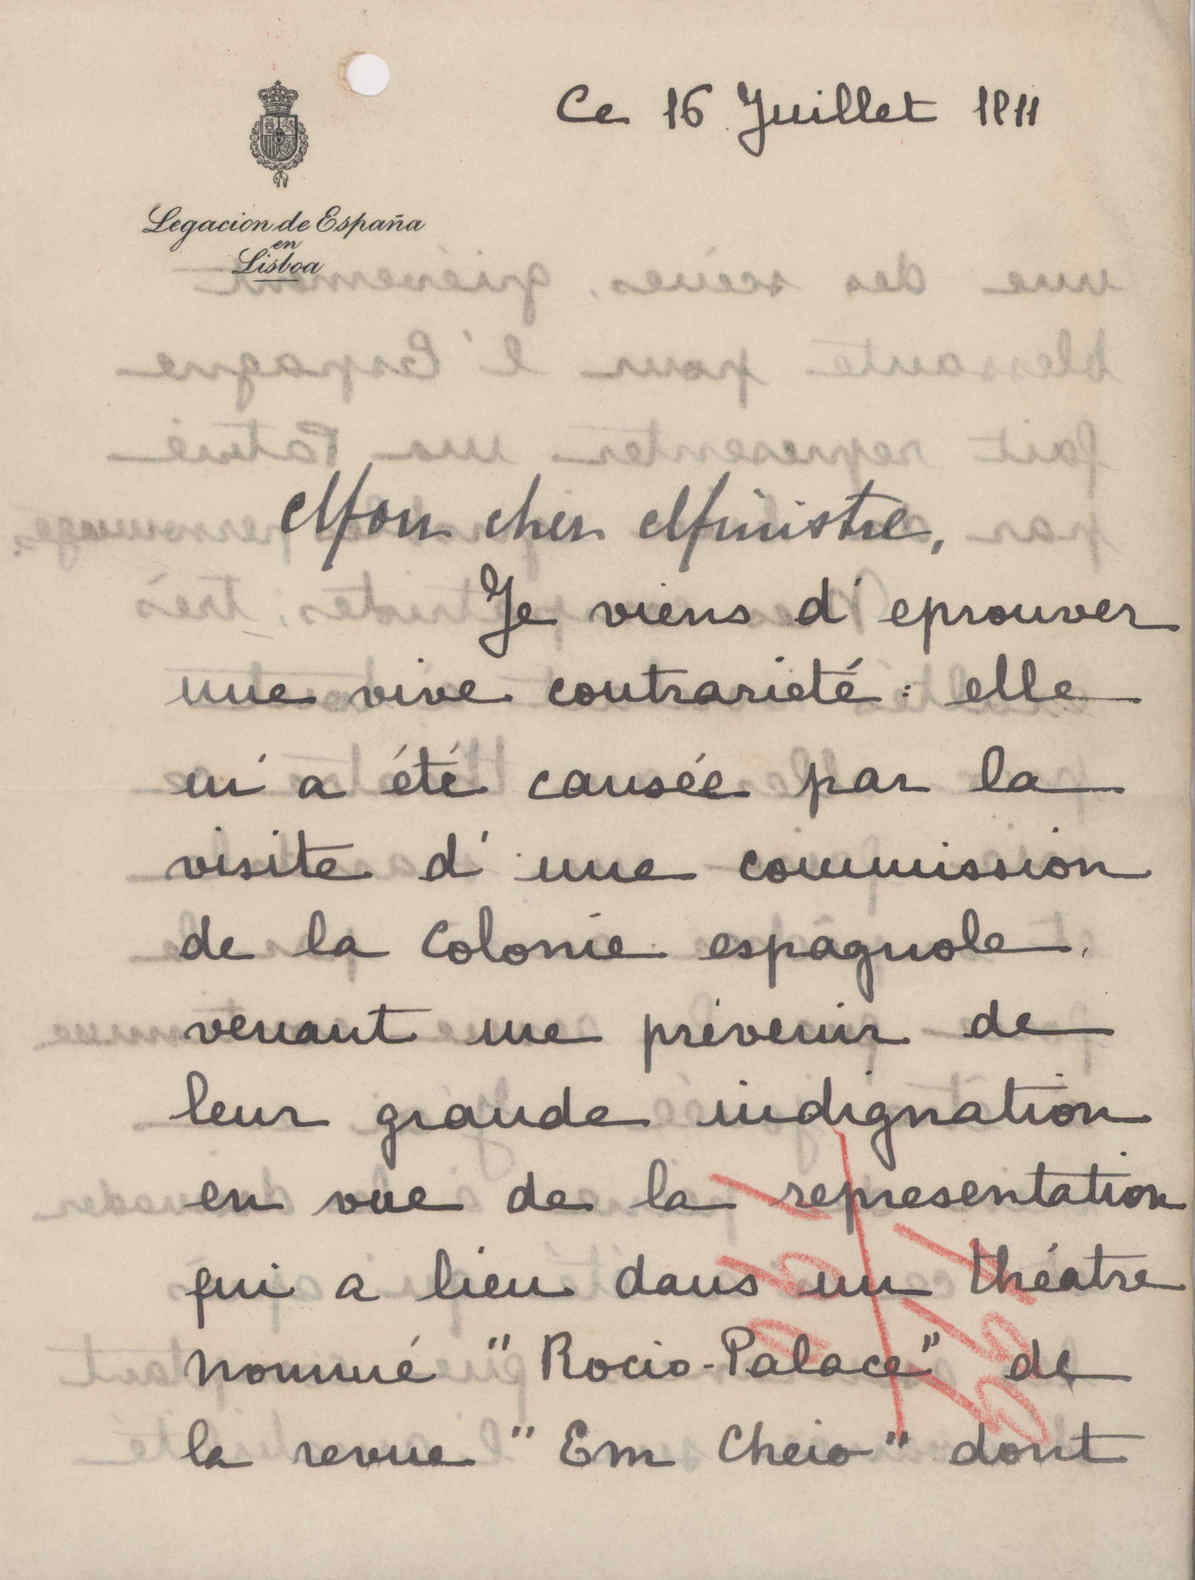 Ce 16 Juillet 1911
Legacion de España
en
Lisboa
Mon cher Ministre,
Je viens d'eprouver
une vive contrarieté: elle
m'a été causée par la
visite d'une commission
de la Colonie espagnole,
venant me prévenir de
leur grande indignation
en vue de la representation
qui a lieu dans un théatre
nommé "Rocio-Palace" de
la revue "Em Cheio" dont